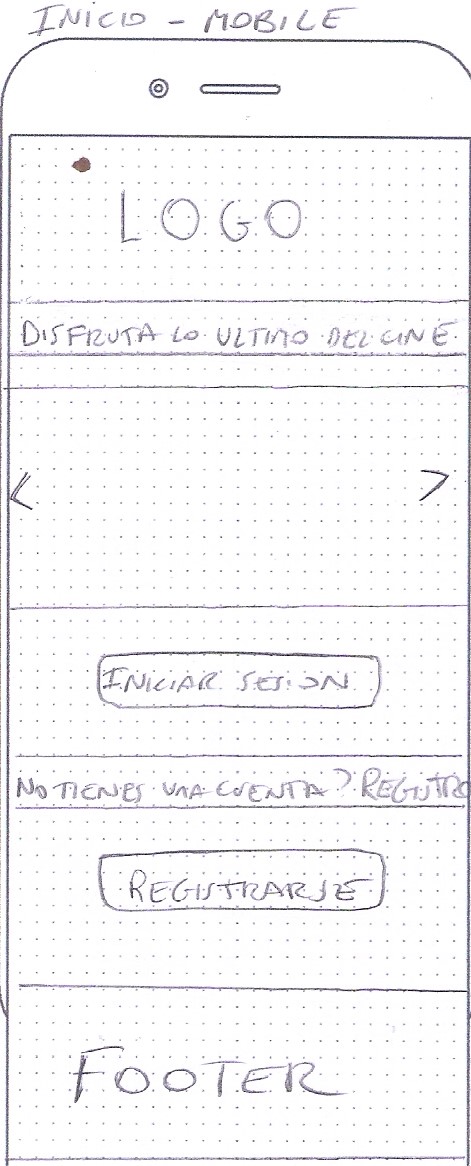 INICIO - MOBILE
LOGO
DISFRUTA LO ULTIMO DEL CINE
<
>
INICIAR SESION
NO TIENES UNA CUENTA? REGISTRO
REGISTRARSE
FOOTER